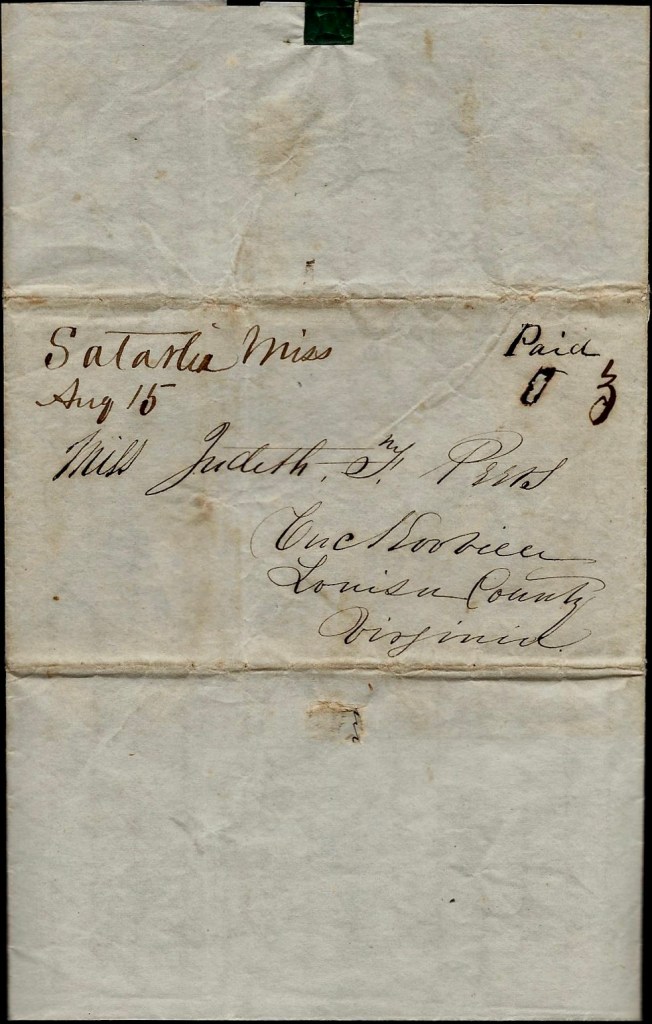 Satartia Miss
Paid
Aug 15
3
Miss Judith. F.
Cuckooville
Louisa County
Virginia.